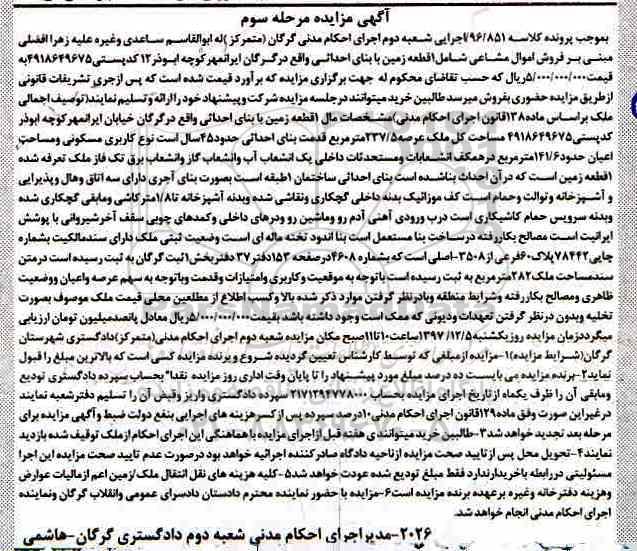 آگهی مزایده مرحله سوم
بموجب پرونده کلاسه ۹۶/۸۵۱/اجرایی شعبه دوم اجرای احکام مدنی گرگان (متمرکز )له ابوالقاسم ساعدی وغیره علیه زهرا افضلی
مبنی بر فروش اموال مشاعی شامل۱قطعه زمین با بنای احداثی واقع درگرگان ایرانمهرکوچه ابوذر۱۲ کدپستی۴۹۱۸۶۴۹۶۷۵به
قیمت۵/۰۰۰/۰۰۰/۰۰۰ریال که حسب تقاضای محکوم له جهت برگزاری مزایده که برآورد قیمت شده است که پس ازجری تشریفات قانونی
ازطریق مزایده حضوری بفروش میرسد طالبین خرید میتوانند درجلسه مزایده شرکت و پیشنهاد خود را ارائه و تسلیم نمایند(توصیف اجمالی
ملک براساس ماده۱۳۸قانون اجرای احکام مدنی)مشخصات مال ۱قطعه زمین با بنای احداثی واقع درگرگان خیابان ایرانمهرکوچه ابوذر
کدپستی۴۹۱۸۶۴۹۶۷۵ مساحت کل ملک عرصه۲۳۷/۵مترمربع قدمت بنای احداثی حدود۴۵سال است نوع کاربری مسکونی ومساحت
اعیان حدود۱۴۱/۶مترمربع درهمکف انشعابات ومستحدثات داخلی یک انشعاب آب وانشعاب گاز وانشعاب برق تک فاز ملک تعرفه شده
۱قطعه زمین است که درآن احداث بناشده است بنای احداثی ساختمان ۱طبقه است بصورت بنای آجری دارای سه اتاق وهال وپذیرایی
و آشپزخانه وتوالت وحمام است کف موزائیک بدنه داخلی گچکاری ونقاشی شده وبدنه آشپزخانه تا۱/۸مترکاشی ومابقی گچکاری شده
وبدنه سرویس حمام کاشیکاری است درب ورودی آهنی آدم رو وماشین رو ودرهای داخلی وکمدهای چوبی سقف آخرشیروانی با پوشش
ایرانیت است مصالح بکاررفته درساخت بنا مستعمل است بنا اندود تخته ماله ای است وضعیت ثبتی ملک دارای سندمالکیت بشماره
چاپی۷۸۴۴۲پلاک۶۰فرعی از۳۵۰۸-اصلی است که بشماره ۴۶۰۸درصفحه ۱۵۳دفتر۳۷ دفتربخش۱ثبت گرگان به ثبت رسیده است درمتن
سندمساحت ملک۲۸۲مترمربع به ثبت رسیده است باتوجه به موقعیت وکاربری وامتیازات وقدمت وباتوجه به سهم عرصه واعیان ووضعیت
ظاهری ومصالح بکاررفته وشرایط منطقه وبادرنظر گرفتن موارد ذکر شده بالا وکسب اطلاع از مطلعین محلی قیمت ملک موصوف بصورت
تخلیه وبدون درنظر گرفتن تعهدات ودیونی که ممک است وجود داشته باشد بقیمت۵/۰۰۰/۰۰۰/۰۰۰ریال معادل پانصدمیلیون تومان ارزیابی
میگرددزمان مزایده روزیکشنبه۱۳۹۷/۱۲/۵ساعت۱۰تا۱۱صبح مکان مزایده شعبه دوم اجرای احکام مدنی(متمرکز)دادگستری شهرستان
گرگان(شرایط مزایده)۱-مزایده ازمبلغی که توسط کارشناس تعیین گردیده شروع و برنده مزایده کسی است که بالاترین مبلغ را قبول
نماید۲-برنده مزایده می بایست ده درصد مبلغ مورد پیشنهاد را تا پایان وقت اداری روز مزایده نقدا" بحساب سپرده دادگستری تودیع
ومابقی آن را ظرف یکماه از تاریخ اجرای مزایده بحساب ۲۱۷۱۲۹۴۷۷۸۰۰۰ سپرده دادگستری واریز وفیش آن را تسلیم دفترشعبه نمایند
درغیراین صورت وفق ماده۱۲۹قانون اجرای احکام مدنی۱۰درصد سپرده پس ازکسرهزینه های اجرایی بنفع دولت ضبط وآگهی مزایده برای
مرحله بعد تجدید خواهد شد۳-طالبین خرید میتوانند۵ هفته قبل ازاجرای مزایده با هماهنگی این اجرای احکام ازملک توقیف شده بازدید
نمایند۴-تحویل محل پس ازتایید صحت مزایده ازناحیه دادگاه صادرکننده اجرائیه خواهد بود درصورت عدم تایید صحت مزایده این اجرا
مسئولیتی دررابطه باخریدارندارد فقط مبلغ تودیع شده عودت خواهد شد۵-کلیه هزینه های نقل انتقال ملک/زمین اعم ازمالیات عوارض
وهزینه دفترخانه وغیره برعهده برنده مزایده است۶-مزایده با حضور نماینده محترم دادستان دادسرای عمومی وانقلاب گرگان ونماینده
اجرای احکام مدنی انجام خواهد شد.
۲۰۲۶-مدیراجرای احکام مدنی شعبه دوم دادگستری گرگان-هاشمی